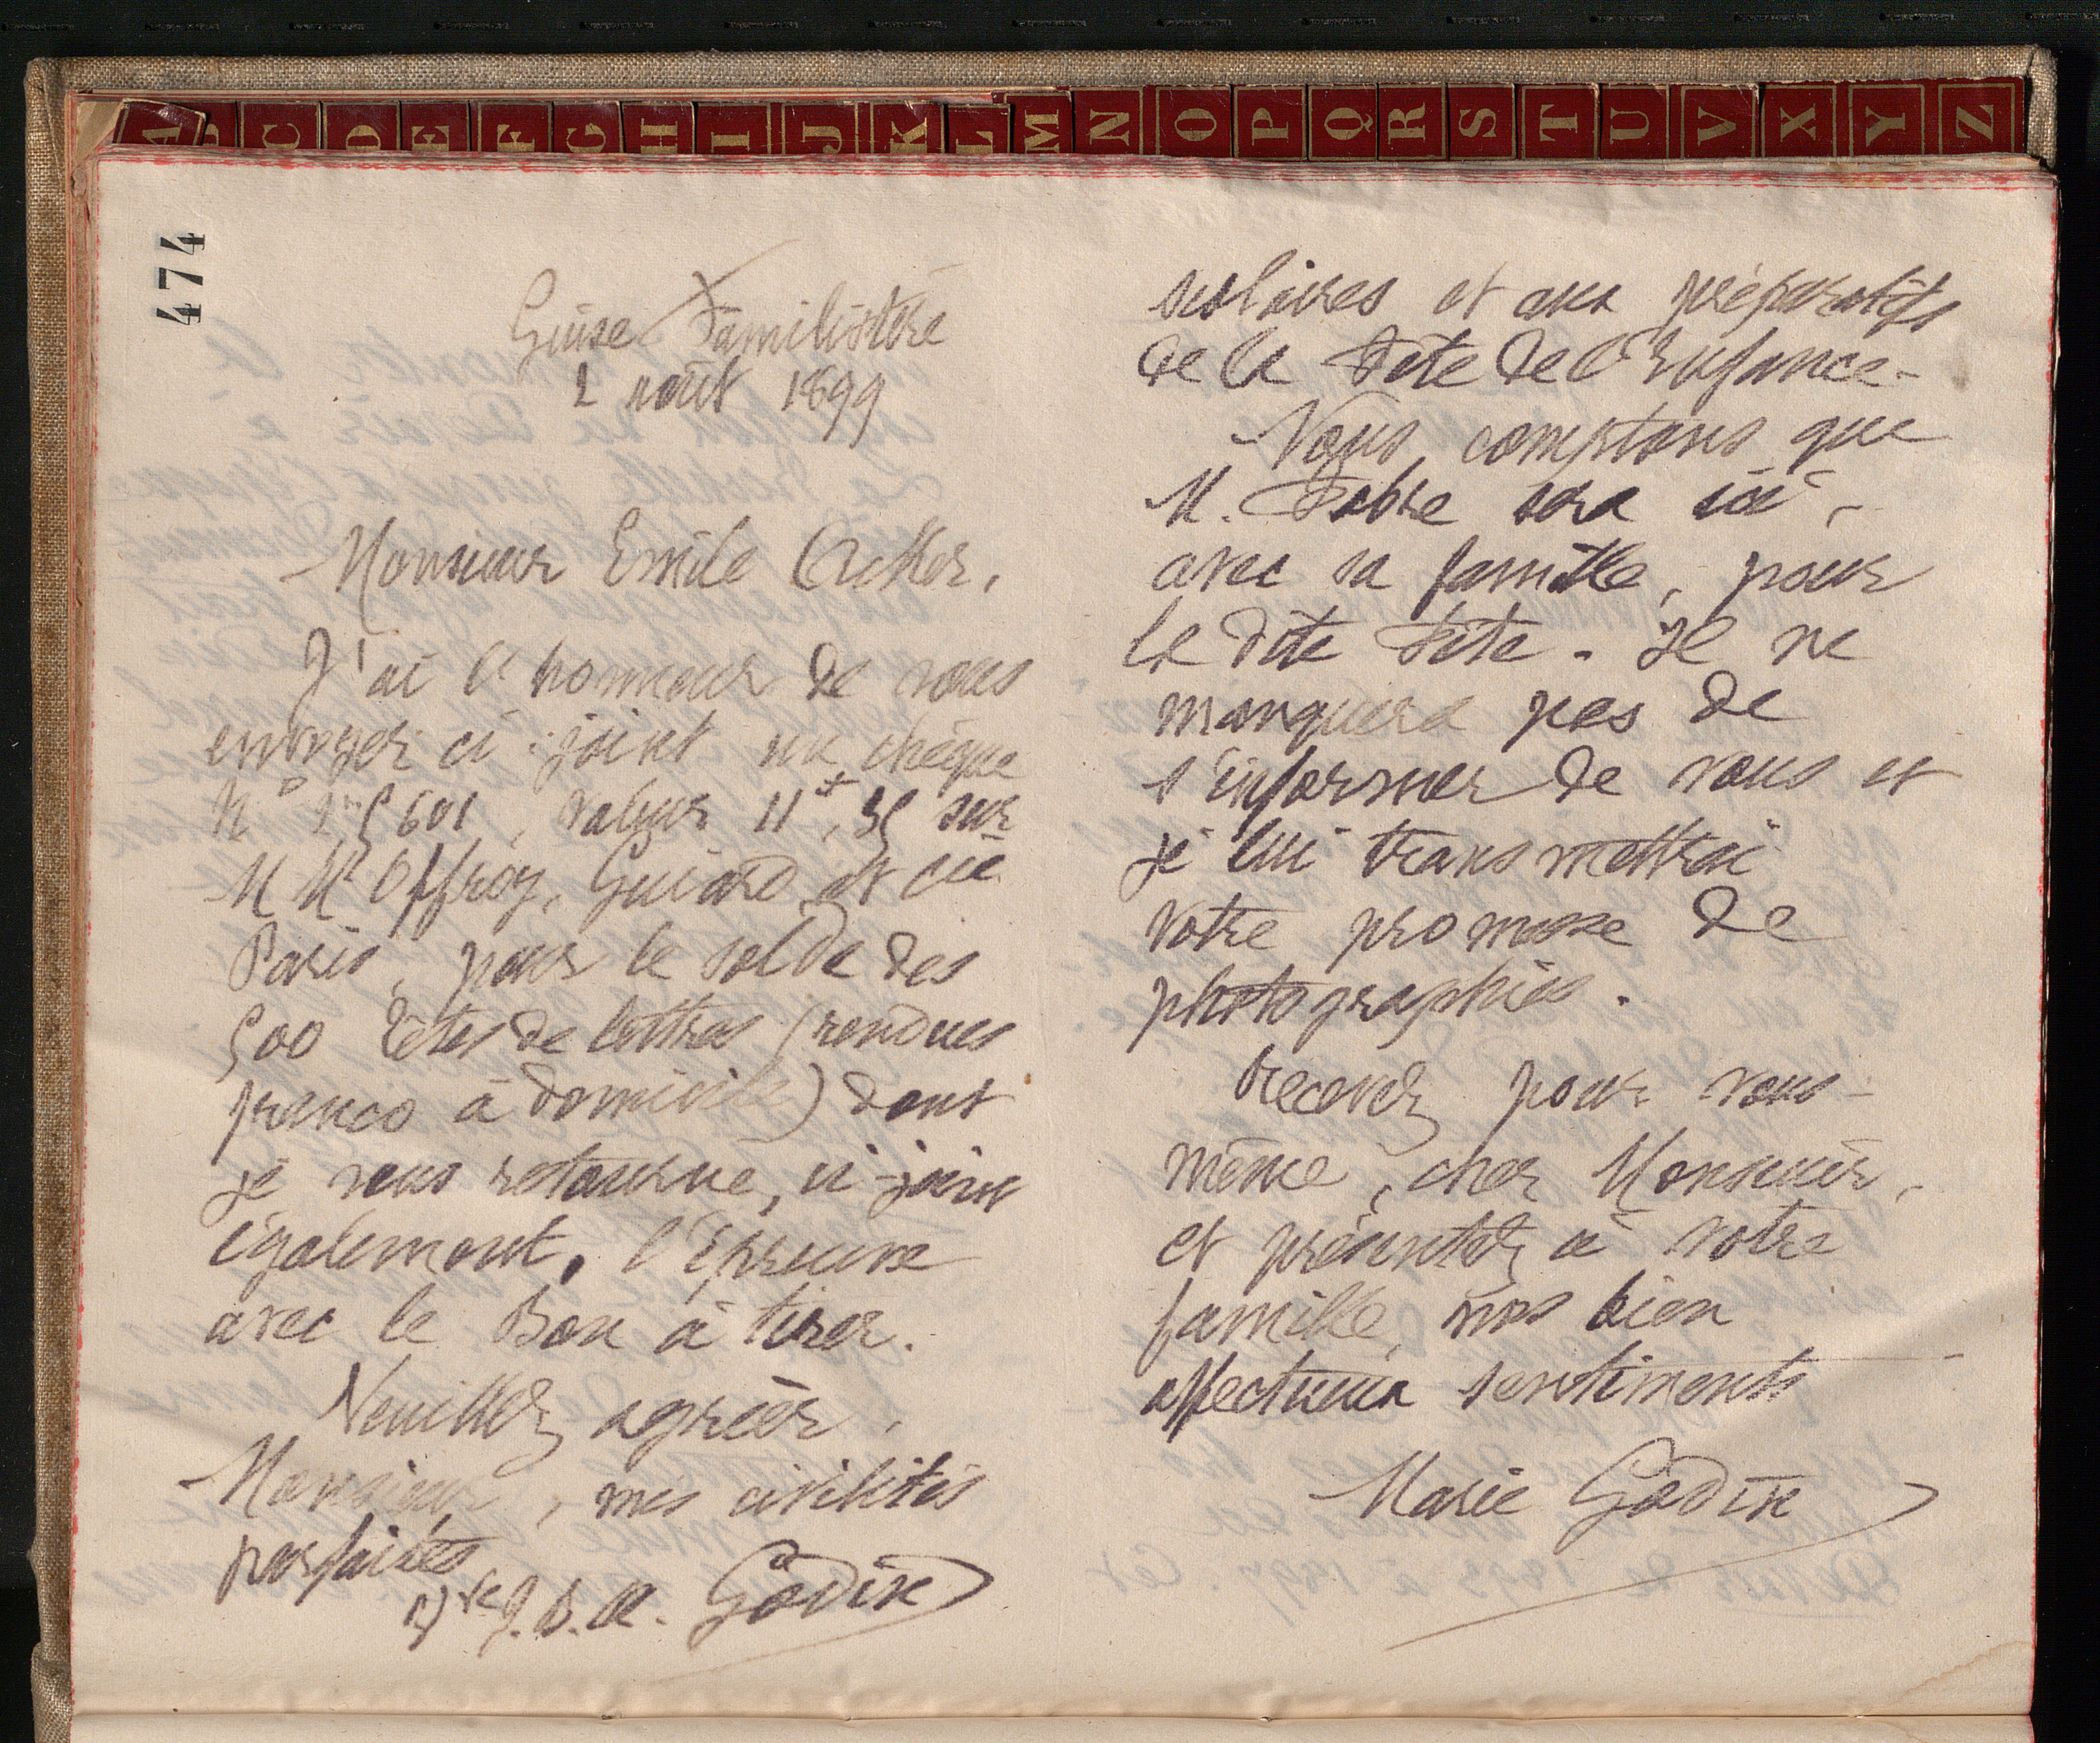 A B C D E F G H I J K L M N O P Q R S T U V X Y Z
474
Guise Familistère
2 août 1899
Monsieur Emile Acker,
J'ai l'honneur de vous
envoyer ci-joint un chèque
N° 601, valeur 11f,35 sur
M M Offroy, Guiard et Cie
Paris, pour le solde des
500 têtes de lettres (rendues
franco à domicile) dont
je vous retourne, ci-joint
également, l'épreuve
avec le Bon à tirer.
Veuillez agréer,
Monsieur, mes civilités
parfaites
Vve J. B. A. Godin
scolaires et aux préparatifs
de la Fête de l'Enfance.
Nous comptons que
M. Fabre sera ici,
avec sa famille, pour
la dite Fête. Il ne
manquera pas de
s'informer de vous et
je lui transmettrai
votre promesse de
photographies.
Recevez pour vous-
même, cher Monsieur,
et présentez à votre
famille, nos bien
affectueux sentiments
Marie Godin